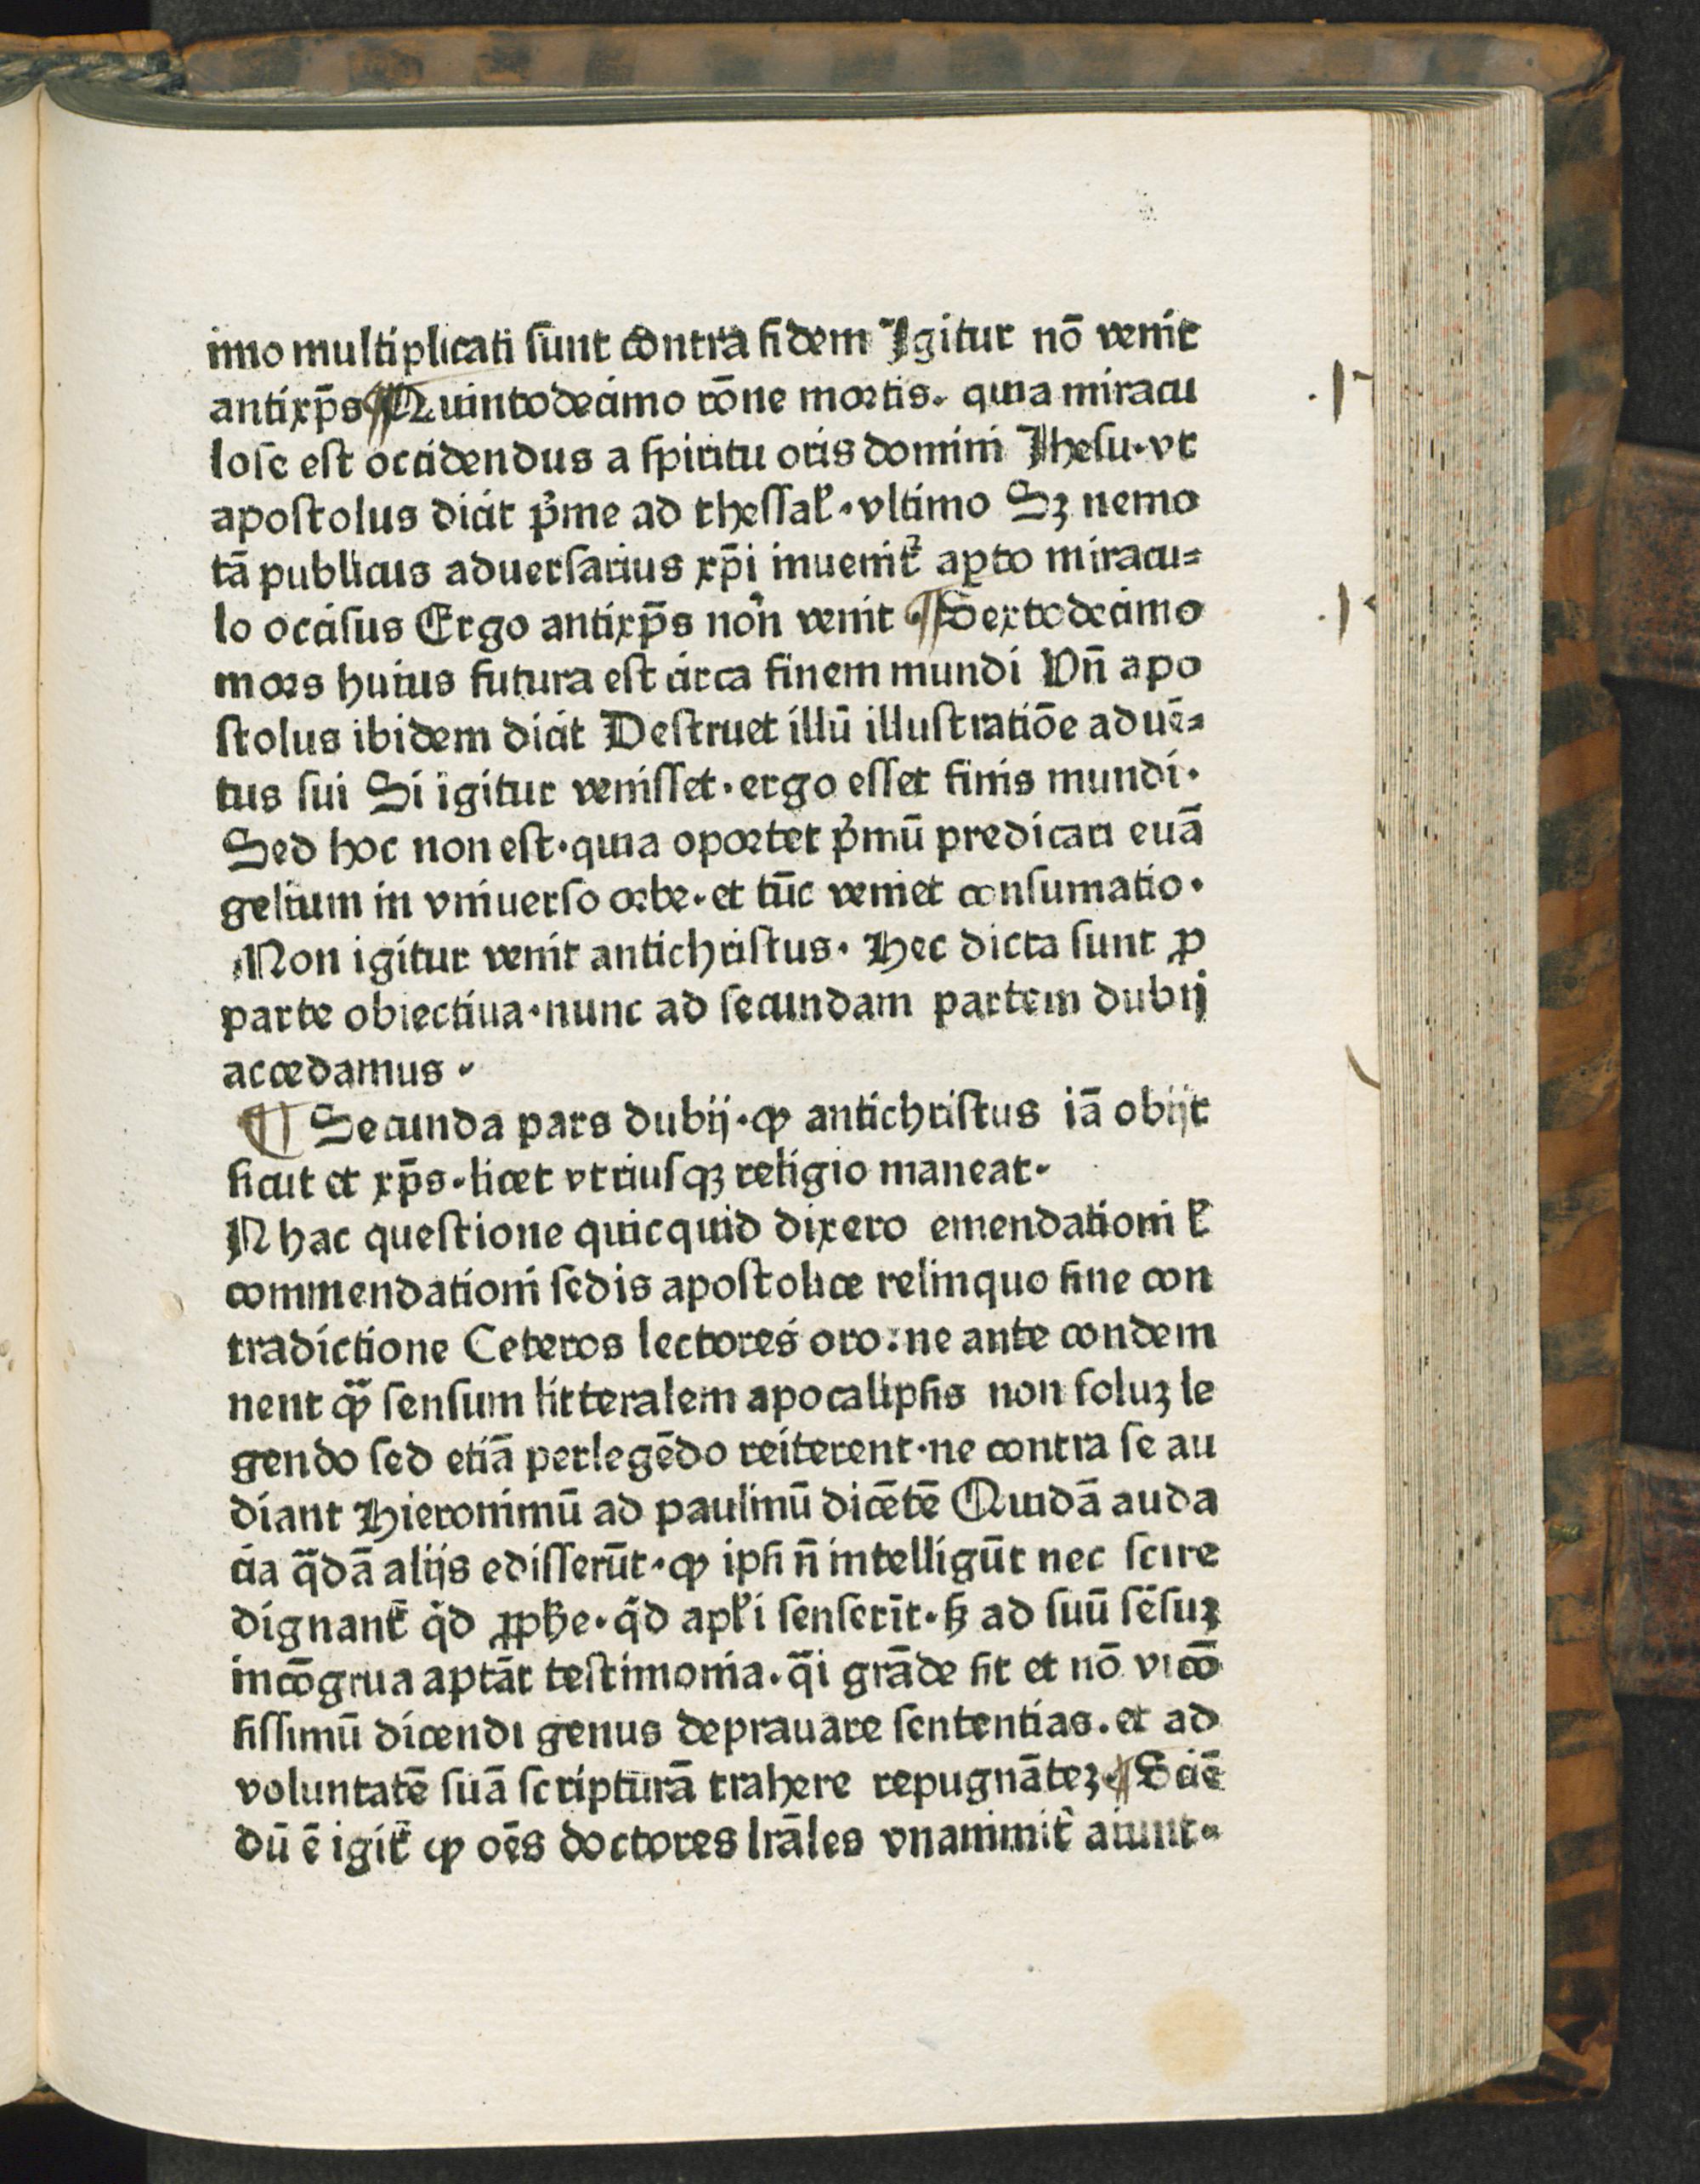 imo multiplicati sunt contra fidem Igitur nō venit
antixp̄s ¶ Quintodecimo rōne mortis. quia miracu
lose est occidendus a spiritu oris domini Jhesu. vt
apostolus dicit p̓me ad thessaɫ. vltimo Sꝫ nemo
tā publicus aduersarius xp̄i inuenit᷑ aꝑto miracu=
lo occisus Ergo antixp̄s non venit ¶ Sextodecimo
mors huius futura est circa finem mundi Vn̄ apo
stolus ibidem dicit Destruet illū illustratiōe aduē=
tus sui Si igitur venisset. ergo esset finis mundi.
Sed hoc non est. quia oportet p̓mū predicari euā
gelium in vniuerso orbe. et tūc veniet consumatio.
Non igitur venit antichristus. Hec dicta sunt ꝓ
parte obiectiua. nunc ad secundam partem dubij
accedamus.
¶ Secunda pars dubij. ꝙ antichristus iā obijt
sicut et xp̄s. licet vtriusqꝫ religio maneat.
N hac questione quicquid dixero emendationi ⁊
commendationi sedis apostolice relinquo sine con
tradictione Ceteros lectores oro: ne ante condem
nent qᷓ sensum litteralem apocalipsis non soluꝫ le
gendo sed etiā perlegēdo reiterent. ne contra se au
diant Hieronimū ad paulinū dicētē Quidā auda
cia qᷓdā alijs edisserūt. ꝙ ipsi n̄ intelligūt nec scire
dignant᷑ qͥd ꝓph̄e. qͥd apɫi senserīt. sꝫ ad suū sēsuꝫ
incōgrua aptāt testimonia. qᷓi grāde sit et nō vicō
sissimū dicendi genus deprauare sententias. et ad
voluntatē suā scripturā trahere repugnāteꝫ. ¶ Sciē
dū ē igit᷑ ꝙ oēs doctores lrāles vnanimit̓ aiunt.